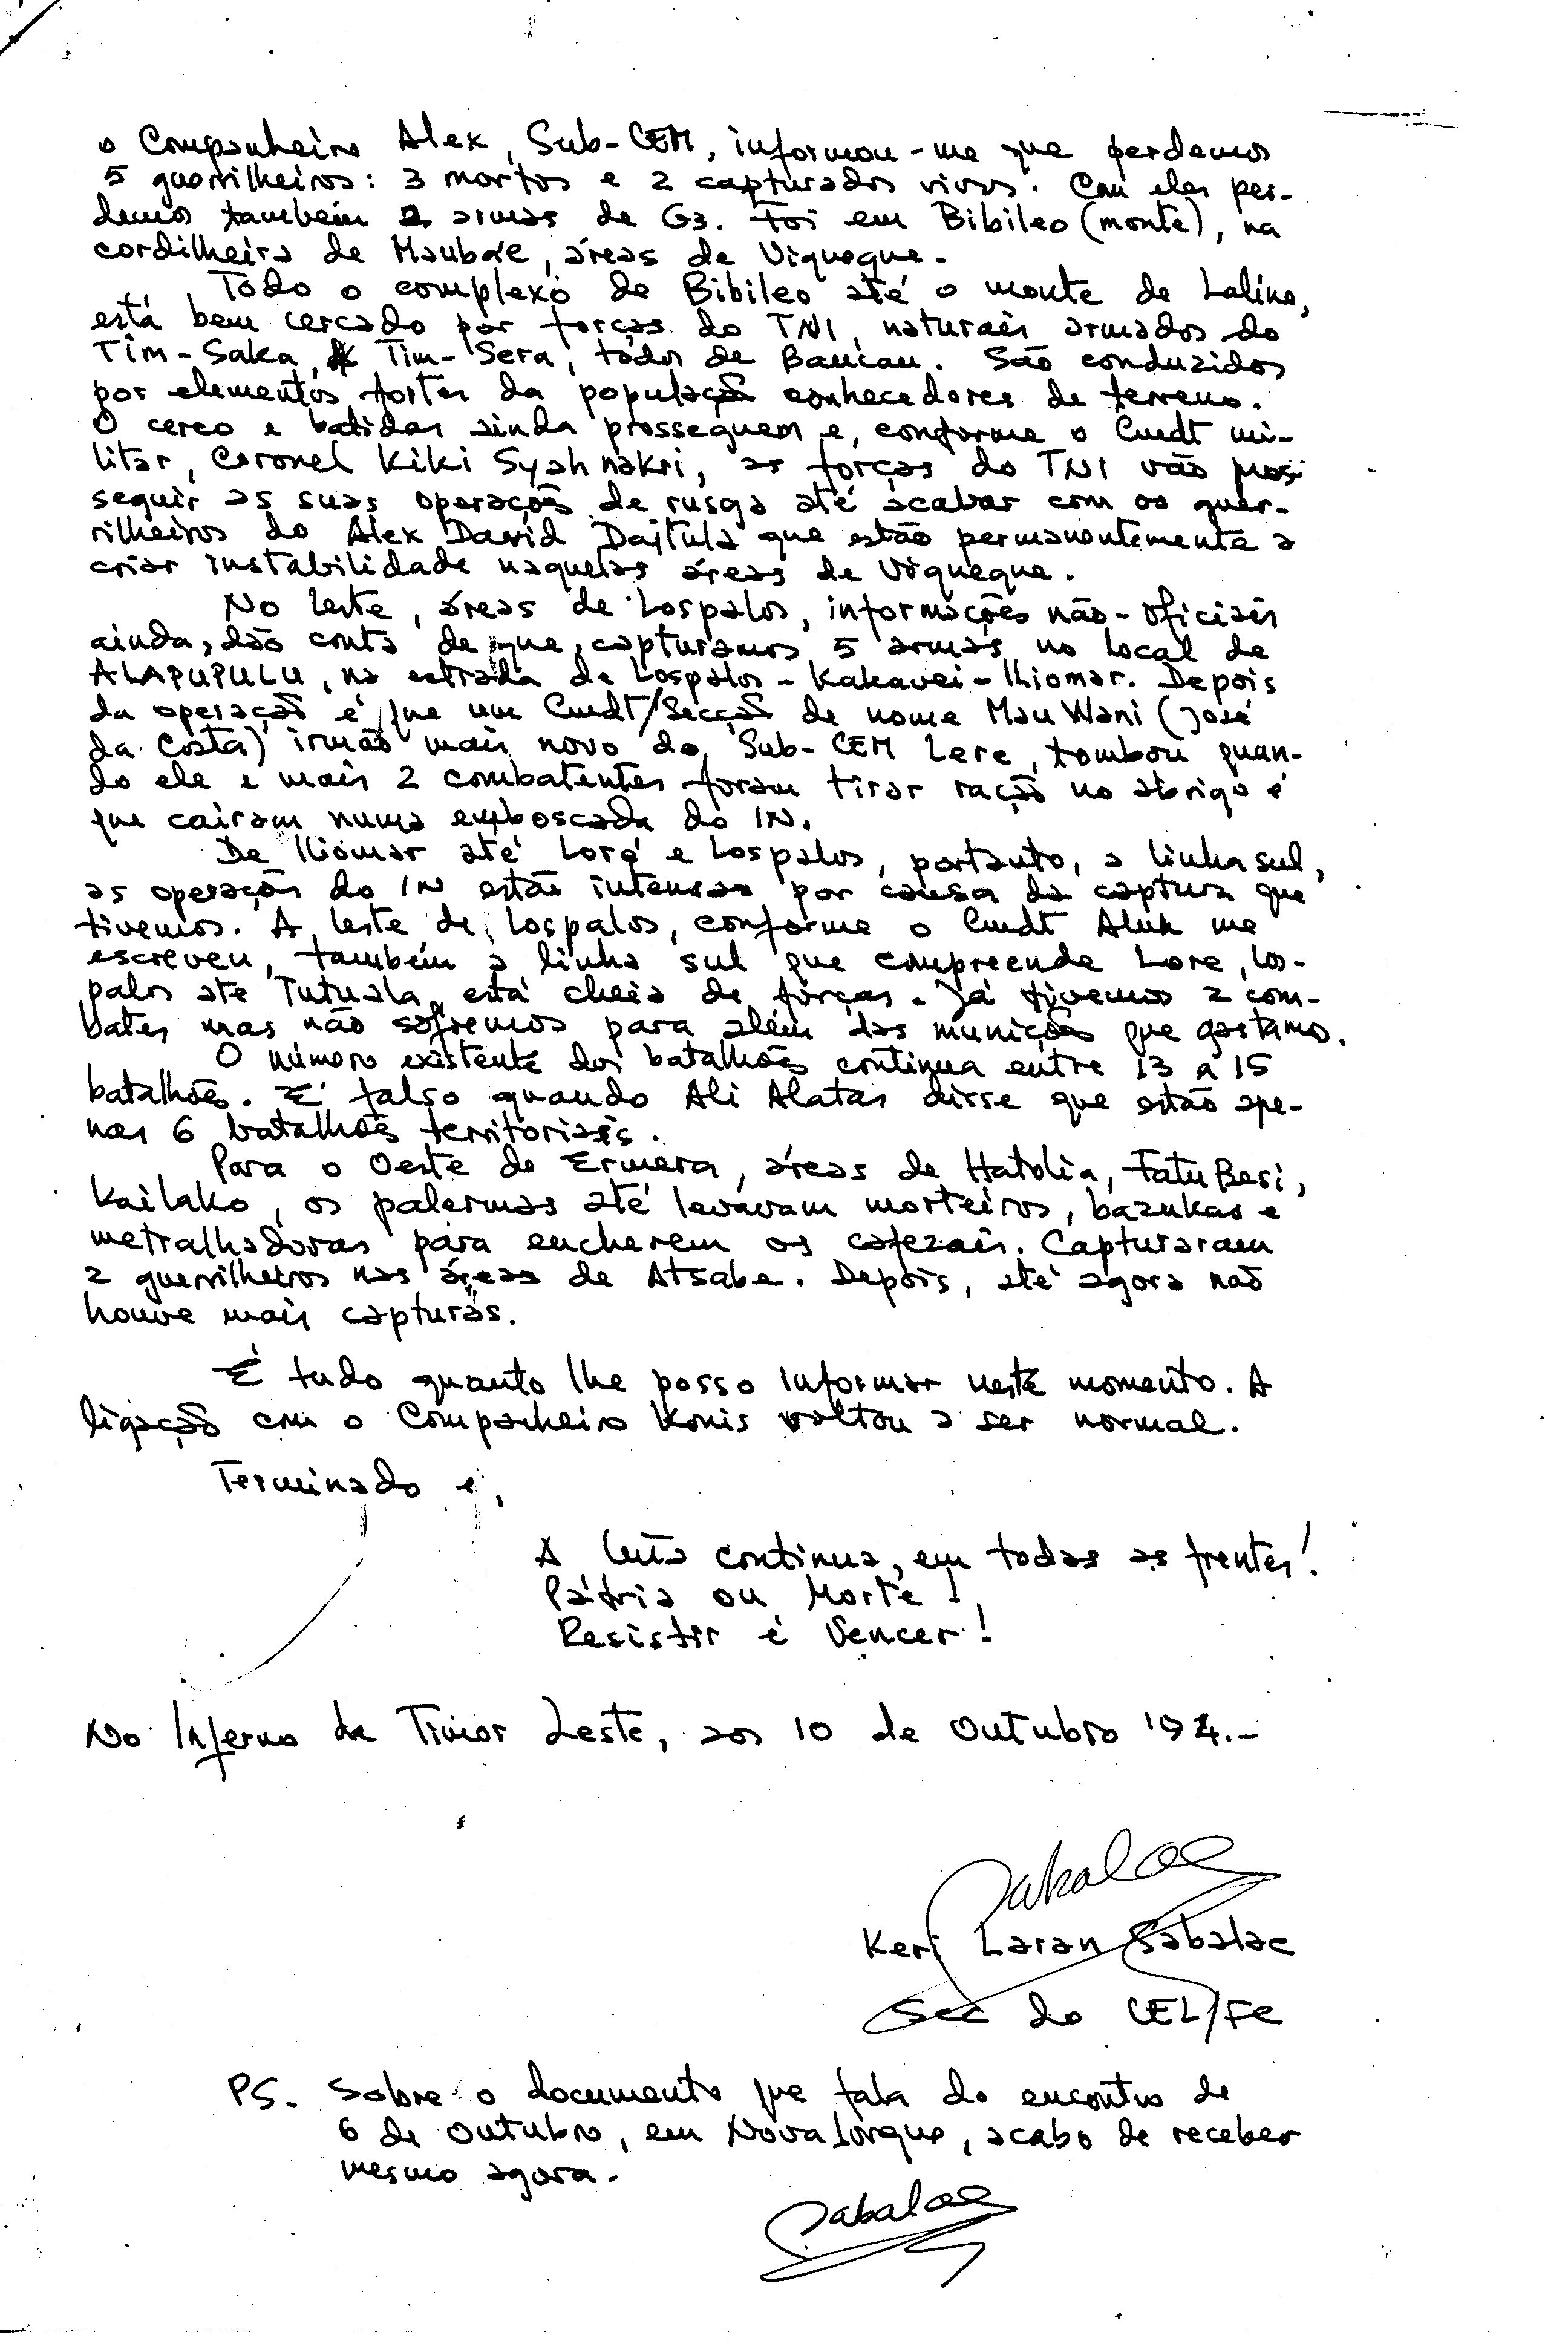 o Companheiro Alex, Sub-CEM, informou-me que perdemos
5 guerrilheiros: 3 mortos e 2 capturados vivos. Com eles per-
demos também 2 armas de G3. Foi em Bibileo (monte), na
cordilheira de Maubae, áreas de Viqueque.
Todo o complexo de Bibileo até o monte de Laline,
está bem cercado por forças do TNI, naturais armados do
Tim-Saka, Tim-Sera, todos de Baucau. São conduzidos
por elementos fortes da população conhecedores de terreno.
O cerco e batidas ainda prosseguem e, conforme o Cmdt mi-
litar, Coronel Kiki Syahnakri, as forças do TNI vão pros-
seguir as suas operações de rusga até acabar com os guer-
rilheiros do Alex David Daitula que estão permanentemente a
criar instabilidade naquelas áreas de Viqueque.
No leste, áreas de Lospalos, informações não-oficiais
ainda, dão conta de que, capturamos 5 armas no local de
ALAPUPULU, na estrada de Lospalos - Kakavei - Iliomar. Depois
da operação é que um Cmdt/Secção de nome Mau Wani (José
da Costa) irmão mais novo do Sub-CEM Lere, tombou quan-
do ele e mais 2 combatentes foram tirar ração no abrigo é
que cairam numa emboscada do IN.
De Iliomar até Loré e Lospalos, portanto, a linha sul,
as operações do IN estão intensas por causa da captura que
tivemos. A leste de Lospalos, conforme o Cmdt Aluk me
escreveu, também a linha sul que compreende Lore, Los-
palos até Tutuala, está cheia de forças. Já tivemos 2 com-
bates mas não sofremos para além das munições que gastamos.
O número existente dos batalhões continua entre 13 a 15
batalhões. É falso quando Ali Alatas disse que estão ape-
nas 6 batalhões territoriais.
Para o Oeste de Ermera, áreas de Hatolia, Fatu Besi,
Kailako, os palermas até levavam morteiros, bazukas e
metralhadoras para encherem os cafezais. Capturaram
2 guerrilheiros nas áreas de Atsabe. Depois, até agora não
houve mais capturas.
É tudo quanto lhe posso informar neste momento. A
ligação com o Companheiro Konis voltou a ser normal.
Terminado e,
A luta continua, em todas as frentes!
Pátria ou Morte!
Resistir é Vencer!
No Inferno de Timor Leste, aos 10 de Outubro 194.-
Sabalae
Keri Laran Sabalae
Sec do CEL/FC
PS. Sobre o documento que fala do encontro de
6 de Outubro, em Nova Iorque, acabo de receber
mesmo agora.
Sabalae